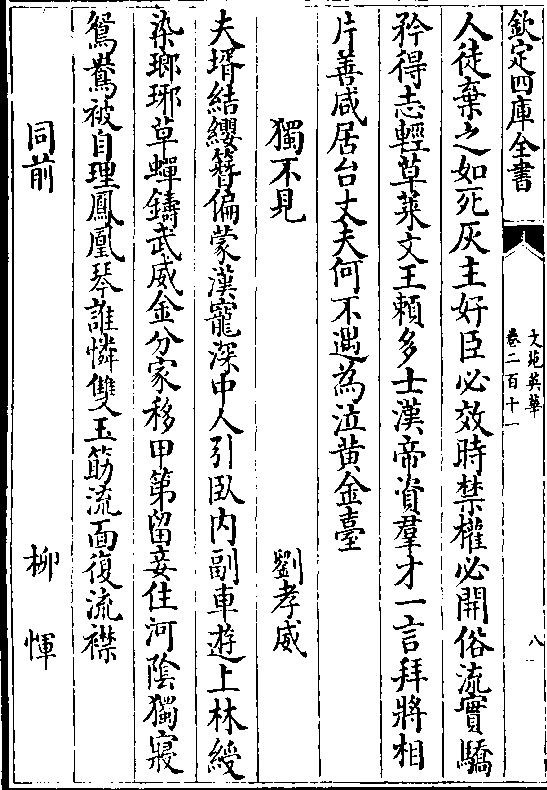 欽定四庫全書
文苑英華
卷二百十一
八
人徒棄之如死灰主好臣必效時禁權必開俗流實驕
矜得志輕草萊文王賴多士漢帝資羣才一言拜將相
片善咸居台丈夫何不遇為泣黄金臺
獨不見
劉孝威
夫壻結纓簪偏蒙漢寵深中人引臥内副車遊上林綬
染瑯琊草蟬鑄武威金分家移甲第留妾住河陰獨寢
鴛鴦被自理鳳凰琴誰憐雙玉筯流面復流襟
同前
柳惲